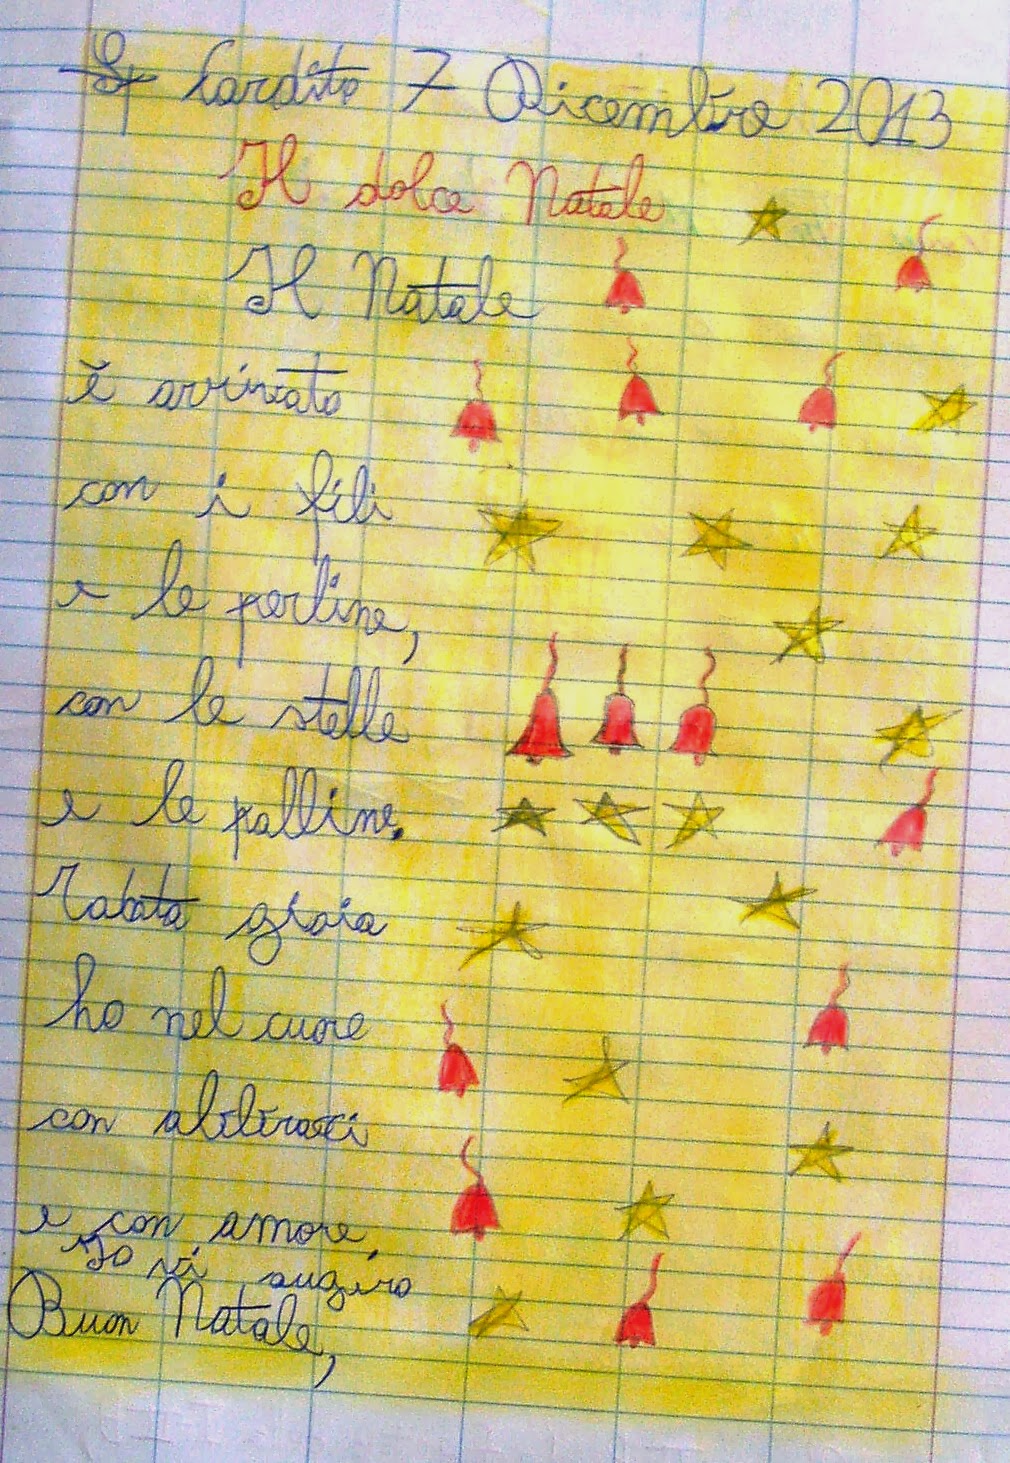 Cardito 7 Dicembre 2013
Il dolce Natale
Il Natale
è arrivato
con i fili
e le perline,
con le stelle
e le palline.
gioia
ho nel cuore
con abbracci
e con amore.
Io vi auguro
Buon Natale,